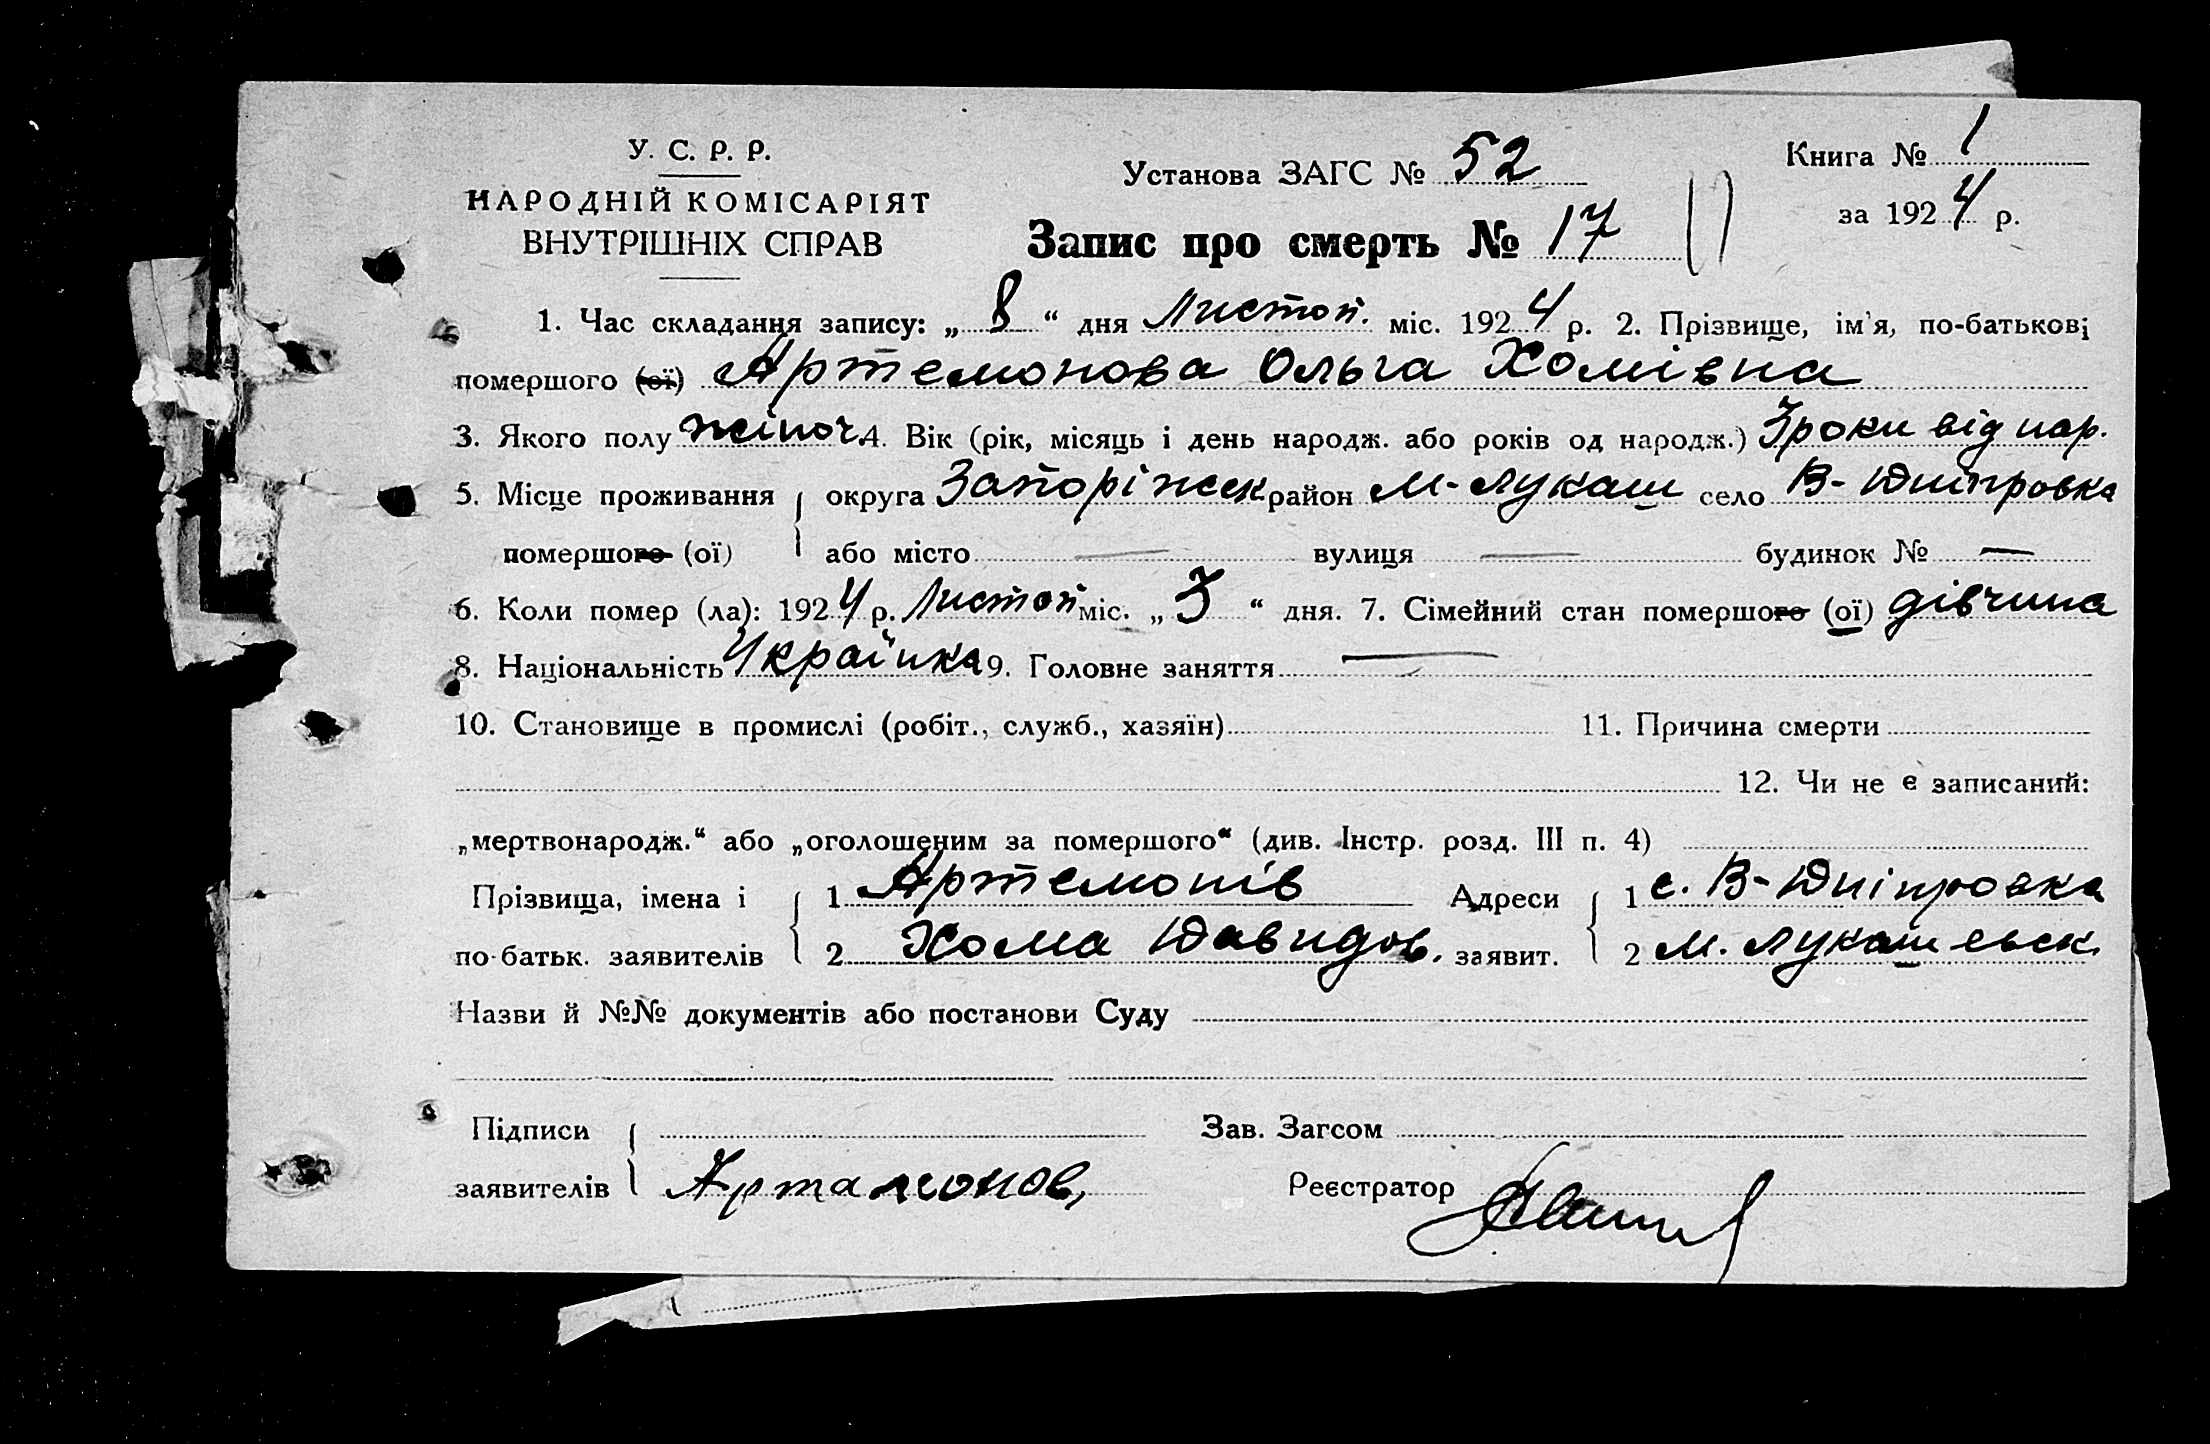 У. С. Р. Р.
НАРОДНІЙ КОМІСАРІЯТ
ВНУТРІШНІХ СПРАВ
Установа ЗАГС № 52
Книга № 1
за 1924 р.
Запис про смерть № 17 17
1. Час складання запису: „8“ дня Листоп. міс. 1924 р. 2. Прізвище, ім'я, по-батькові
помершого (ої) Артемонова Ольга Хомівна
3. Якого полу жіноч. 4. Вік (рік, місяць і день народж. або років од народж.) 3 роки від нар.
5. Місце проживання округа Запоріжск район М-Лукаш село В-Дніпровка
помершого (ої) або місто — вулиця — будинок № —
6. Коли помер (ла): 1924 р. Листоп міс. „3“ дня. 7. Сімейний стан помершого (ої) дівчина
8. Національність Українка 9. Головне заняття —
10. Становище в промислі (робіт., служб., хазяїн) 11. Причина смерти
12. Чи не є записаний:
„мертвонародж.“ або „оголошеним за помершого“ (див. Інстр. розд. III п. 4)
Прізвища, імена і 1 Артемонів Адреси 1 с. В-Дніпровка
по-батьк. заявителів 2 Хома Давидов. заявит. 2 М. Лукашевск.
Назви й №№ документів або постанови Суду
Підписи Зав. Загсом
заявителів Артамонов, Реєстратор